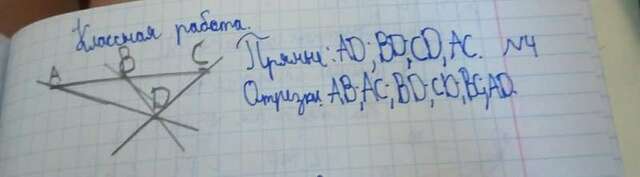 Классная работа.
A B C
D
Прямые: AD; BD, CD, AC. №4
Отрезки: AB; AC; BD; CD, BC, AD.